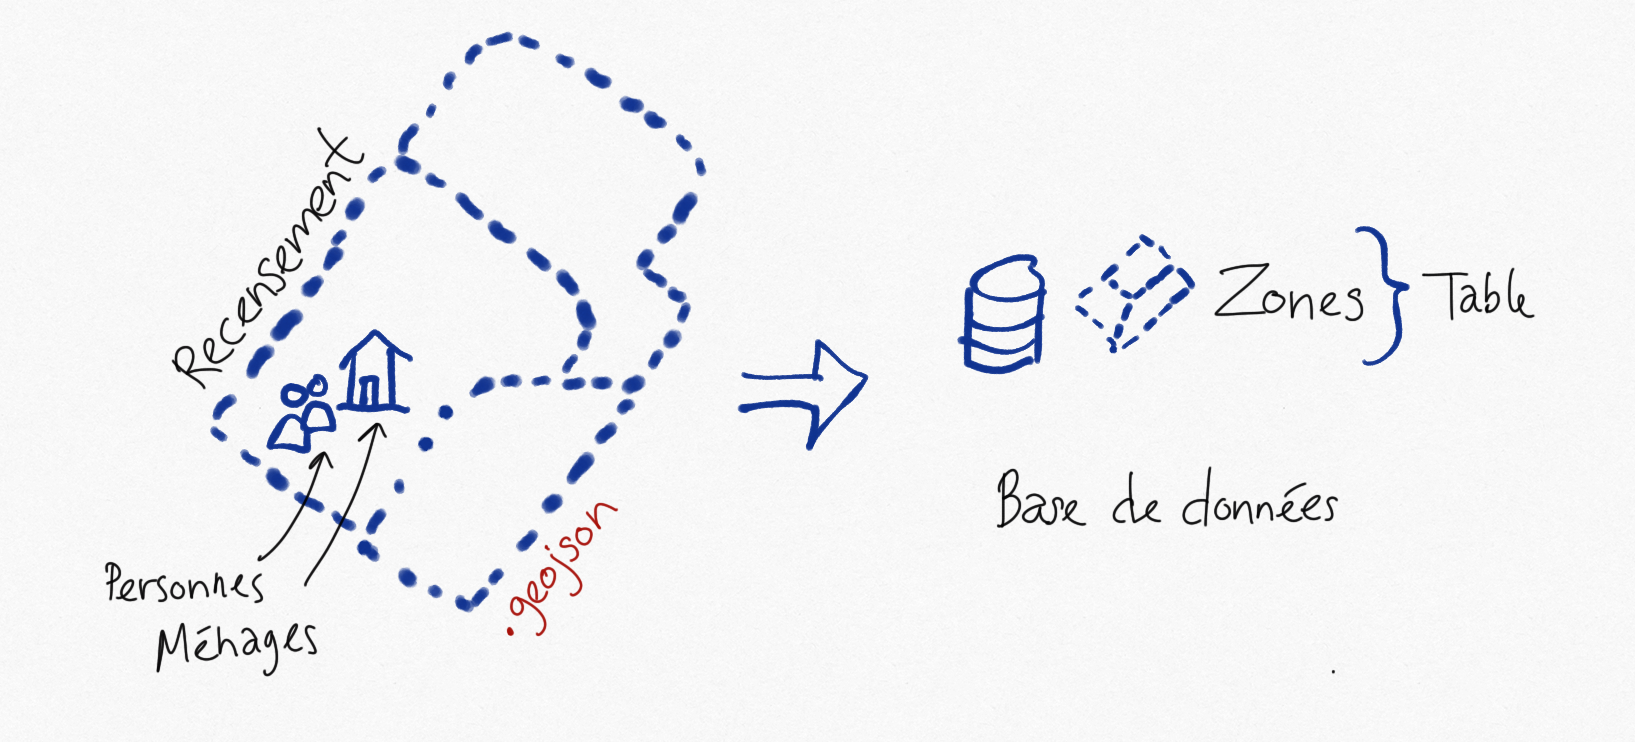 Recensement
Personnes
Ménages
.geojson
Zones } Table
Base de données